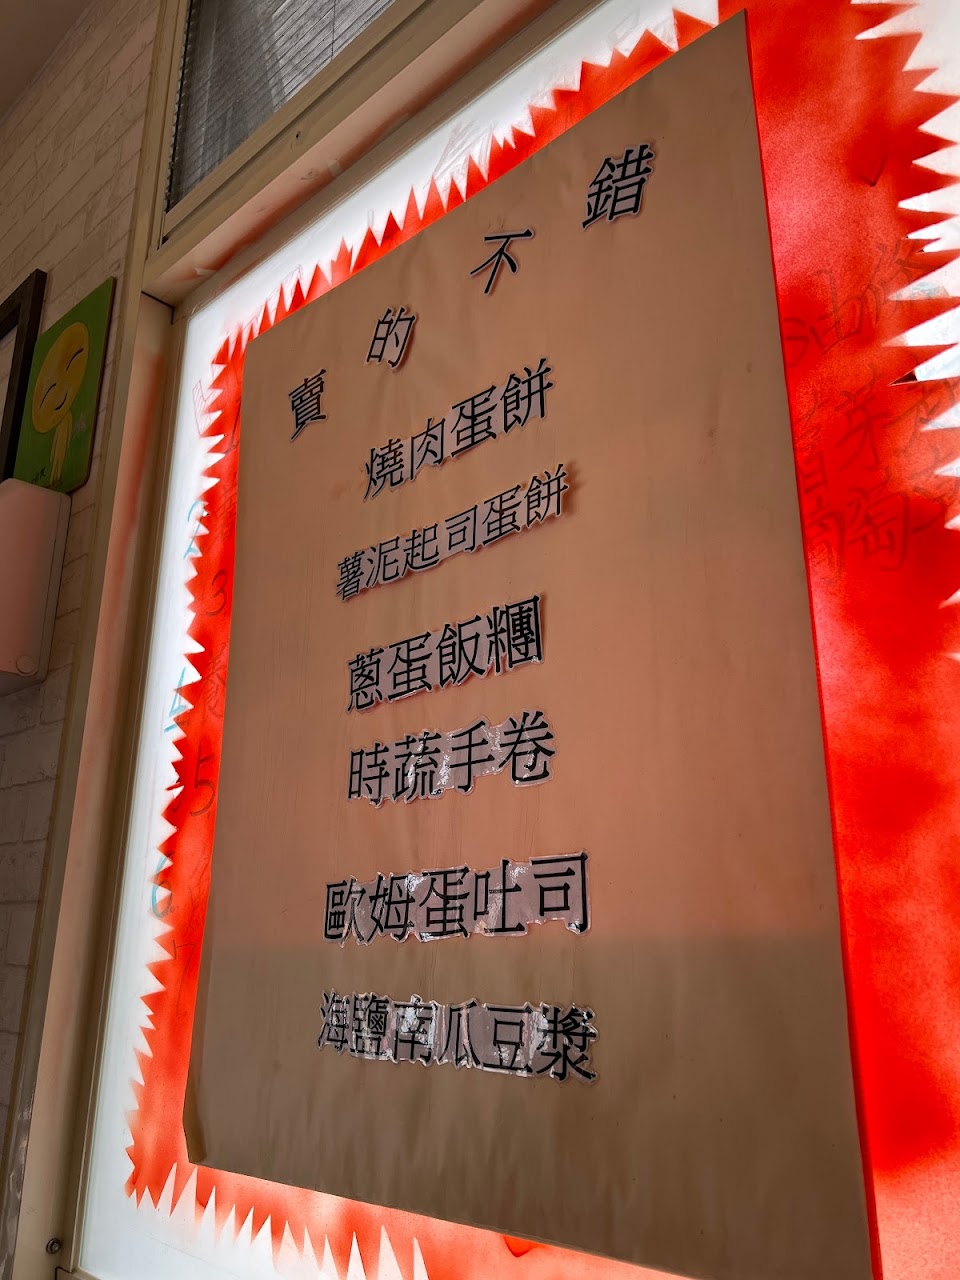 賣的不錯
燒肉蛋餅
薯泥起司蛋餅
蔥蛋飯糰
時蔬手卷
歐姆蛋吐司
海鹽南瓜豆漿
3
5